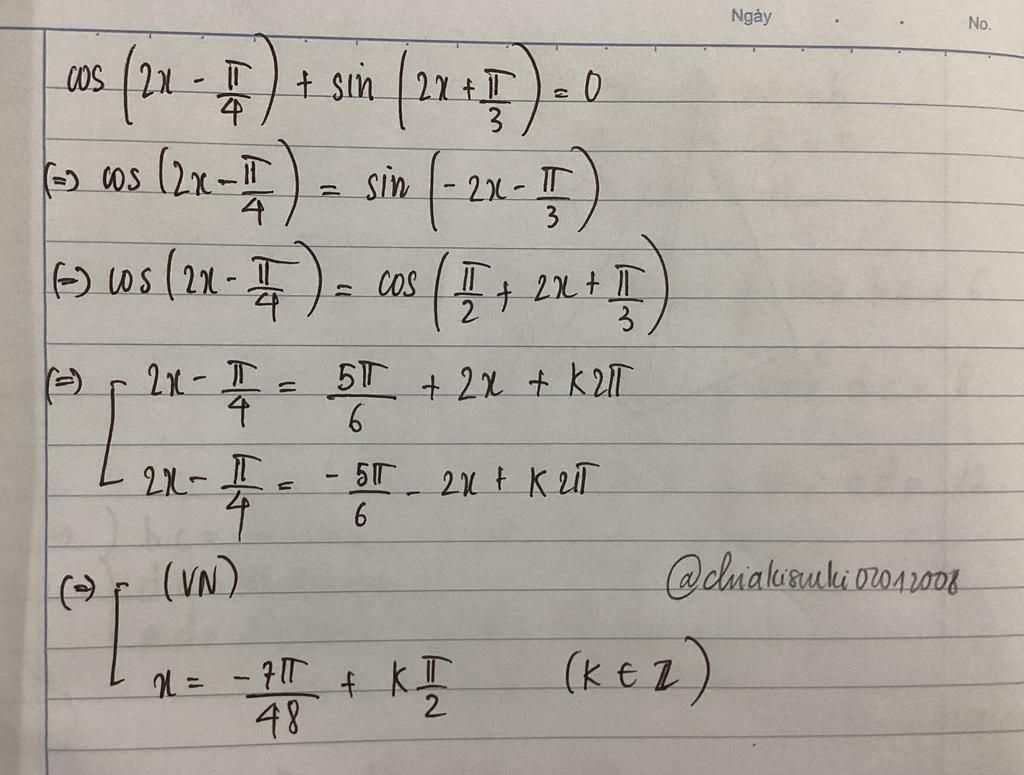 Ngày . . No.
cos (2x - π/4) + sin (2x + π/3) = 0
(=) cos (2x - π/4) = sin (-2x - π/3)
(=) cos (2x - π/4) = cos (π/2 + 2x + π/3)
(=) [ 2x - π/4 = 5π/6 + 2x + K2π
2x - π/4 = -5π/6 - 2x + K2π
(=) [ (VN)
@chiakisuuki02012008
x = -7π/48 + K π/2 (K ∈ Z)